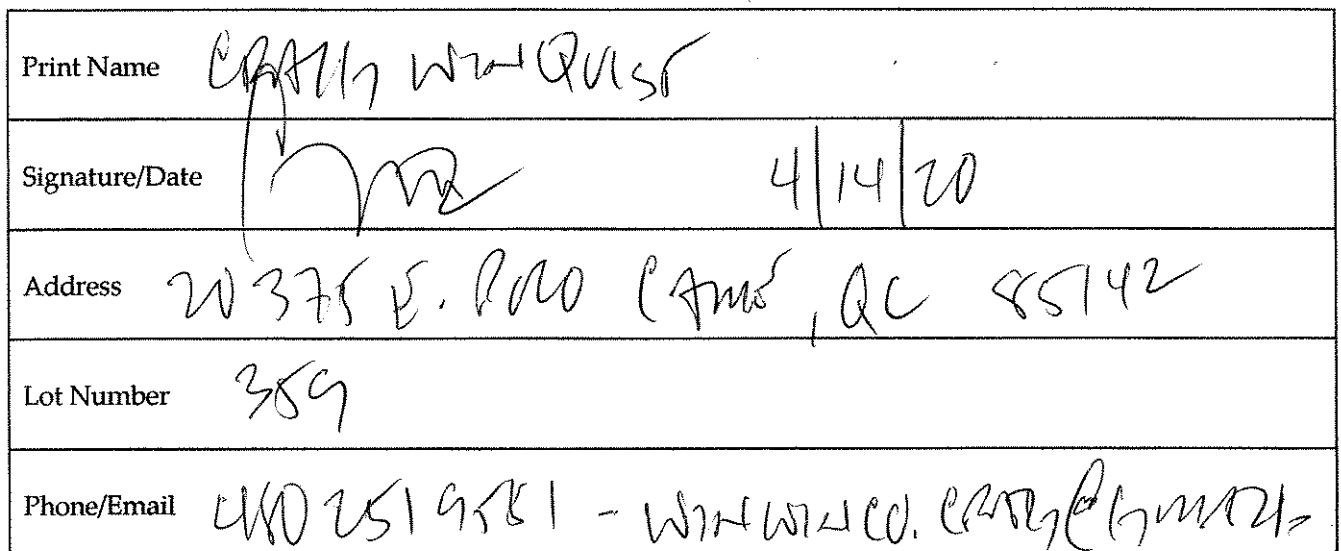 Print Name CRAIG WINQUIST
Signature/Date 4/14/20
Address 20375 E. POCO CALLE, QC 85142
Lot Number 359
Phone/Email 480 251 9551 - WINWINCO.CRAIG@GMAIL